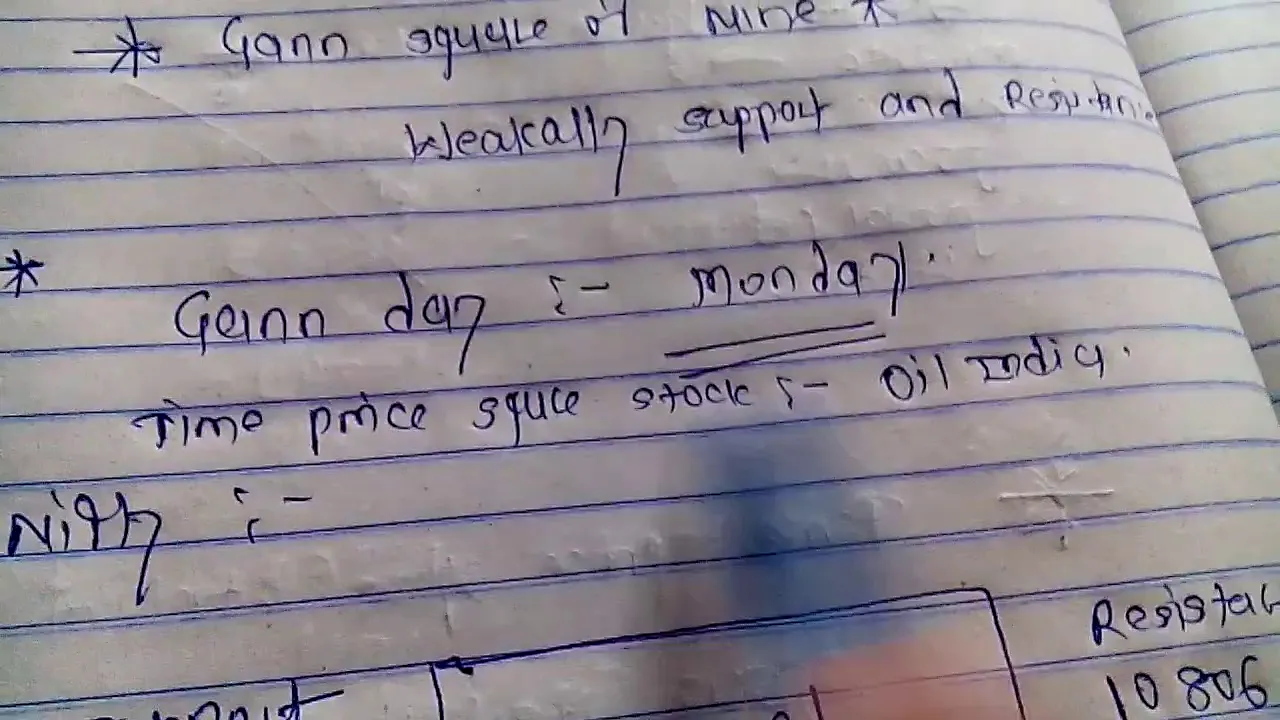 * Gann squule of Nine *
Weakally support and Resistan
* Geann day :- Monday.
Time price squce stock :- Oil India.
Nifty :-
Resista
10806